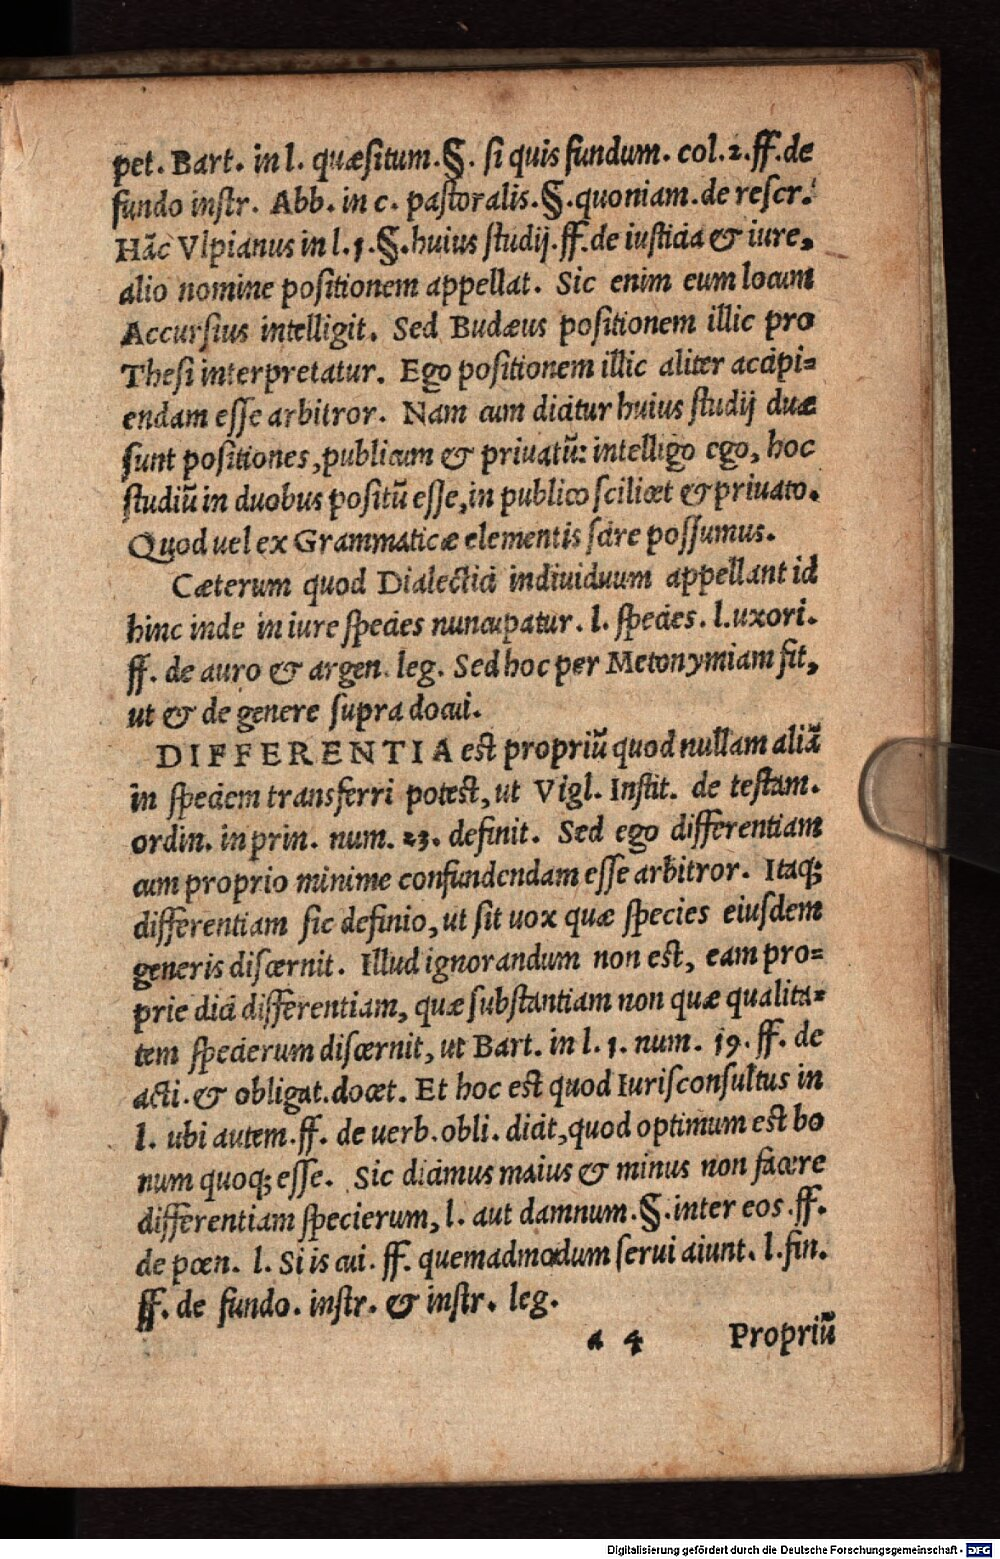 pet. Bart. in l. quæsitum.§. si quis fundum. col.2.ff.de
fundo instr. Abb. in c. pastoralis.§.quoniam.de rescr.
Hāc Vlpianus in l.1.§.huius studij.ff.de iusticia & iure,
alio nomine positionem appellat. Sic enim eum locum
Accursius intelligit. Sed Budæus positionem illic pro
Thesi interpretatur. Ego positionem illic aliter accipi=
endam esse arbitror. Nam cum dicitur huius studij duæ
sunt positiones, publicum & priuatū: intelligo ego, hoc
studiū in duobus positū esse, in publico scilicet & priuato.
Quod uel ex Grammaticæ elementis scire possumus.
Cæterum quod Dialectici indiuiduum appellant id
hinc inde in iure species nuncupatur. l. species. l.uxori.
ff. de auro & argen. leg. Sed hoc per Metonymiam fit,
ut & de genere supra docui.
DIFFERENTIA est propriū quod nullam aliā
in speciem transferri potest, ut Vigl. Instit. de testam.
ordin. in prin. num. 23. definit. Sed ego differentiam
cum proprio minime confundendam esse arbitror. Itaq;
differentiam sic definio, ut sit uox quæ species eiusdem
generis discernit. Illud ignorandum non est, eam pro=
prie dici differentiam, quæ substantiam non quæ qualita=
tem specierum discernit, ut Bart. in l. 1. num. 19. ff. de
acti. & obligat. docet. Et hoc est quod Iurisconsultus in
l. ubi autem.ff. de uerb. obli. dicit, quod optimum est bo
num quoq; esse. Sic dicimus maius & minus non facere
differentiam specierum, l. aut damnum.§.inter eos.ff.
de pœn. l. Si is cui. ff. quemadmodum serui aiunt. l.fin.
ff. de fundo. instr. & instr. leg.
a 4 Propriū
Digitalisierung gefördert durch die Deutsche Forschungsgemeinschaft - DFG